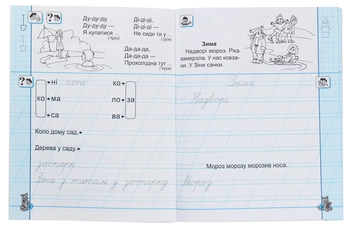 Ду-ду-ду,
Ду-ду-ду —
Я купатися ...
(іду)
Ді-ді-ді,
Ді-ді-ді —
Не сиди ти у ...
Да-да-да,
Да-да-да —
Прохолодна тут ...
ні коні
ко ма
са
ко
по за
ва
Коло дому сад.
Дерева у саду.
зоопарк
Зіна з татом у зоопарку.
Зима
Надворі мороз. Ріка
замерзла. У нас ковза-
ни. У Зіни санки.
Зима
Надворі
Мороз морозу морозив носа.
Мороз